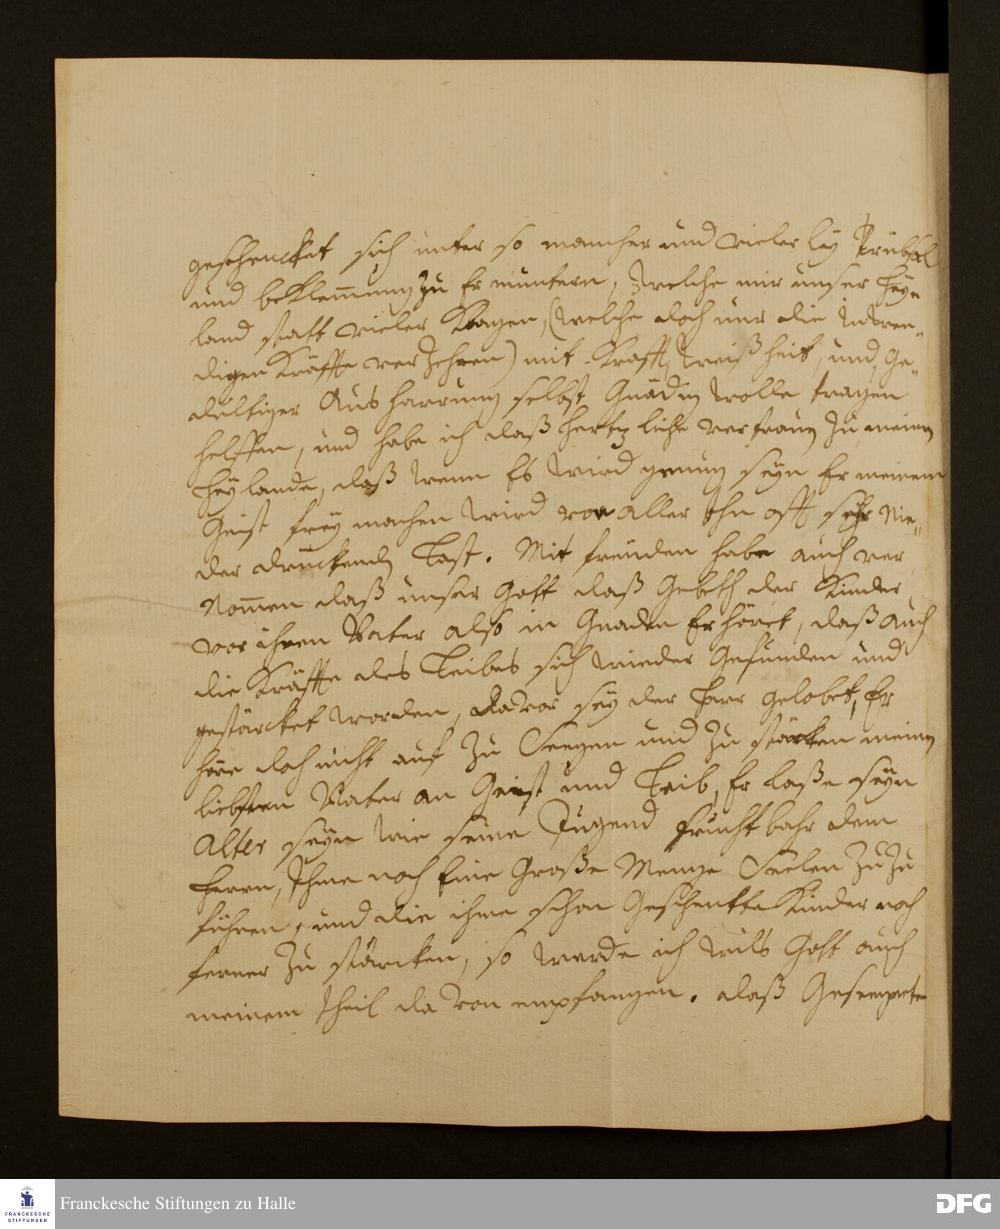 geschencket sich unter so mancher und vieler ley Trübsal
und beklemmung zu Ermuntern, welche mir unser Hey„
land statt vieler Klagen, (welche doch nur die
digen Kräffte verzehren) mit Krafft, Weißheit, und Ge„
dultiger Ausharrung selbst Gnädig wolle tragen
helffen, und habe ich daß hertzliche vertraun zu meinen
Heylande, daß wenn Es wird genung seyn Er meinem
Geist frey machen wird von aller Ihn offt sehr Nie„
der drückenden Last. Mit freuden habe auch ver
nommen daß unser Gott daß Gebeth der Kinder
vor ihren Vater also in Gnaden Erhöret, daß auch
die Kräffte des Leibes sich wieder Gefunden und
gestärcket worden, davor sey der Herr gelobet, Er
höre doch nicht auf zu Seegen und zu stärcken meinen
liebsten Vater an Geist und Leib, Er laße seyn
Alter seyn wie seine Jugend fruchtbahr dem
Herrn, Ihme noch Eine Große Menge Seelen zu zu
führen, und die ihme schon Geschenkte Kinder noch
ferner zu stärcken, so werde ich wils Gott auch
meinem theil davon empfangen. daß
Franckesche Stiftungen zu Halle
FRANCKESCHE
STIFTUNGEN
DFG